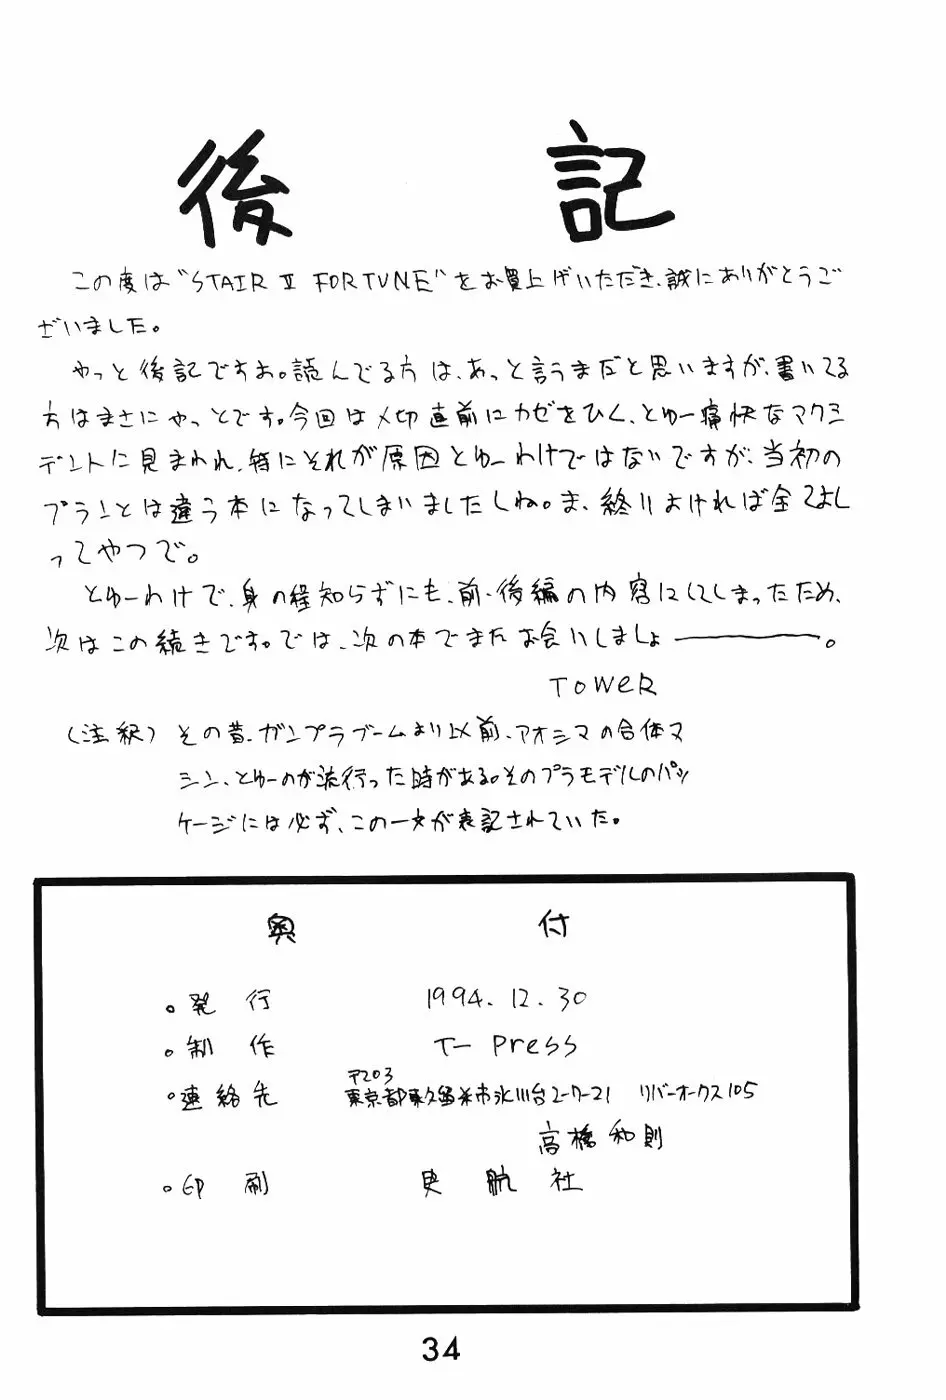 後記
この度は"STAIR Ⅱ FORTUNE"をお買上げいただき、誠にありがとうご
ざいました。
やっと後記ですお。読んでる方は、あっと言うまだと思いますが、書いてる
方はまさにやっとです。今回は〆切直前にカゼをひく、とゆー痛快なアクシ
デントに見まわれ、特にそれが原因とゆーわけではないですが、当初の
プランとは違う本になってしまいましたしね。ま、終りよければ全てよし
ってやつで。
とゆーわけで、身の程知らずにも、前・後編の内容にしてしまったため、
次はこの続きです。では、次の本でまたお会いしましょ―――。
TOWER
(注釈) その昔、ガンプラブームより以前、アオシマの合体マ
シン、とゆーのが流行った時がある。そのプラモデルのパッ
ケージには必ず、この一文が表記されていた。
奥付
・発行 1994.12.30
・制作 T-Press
・連絡先 〒203
東京都東久留米市氷川台2-7-21 リバーオークス105
高橋和則
・印刷 史航社
34